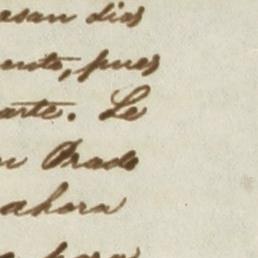 asan dias
ento, pues
arte. Le
n Prado
ahora
para